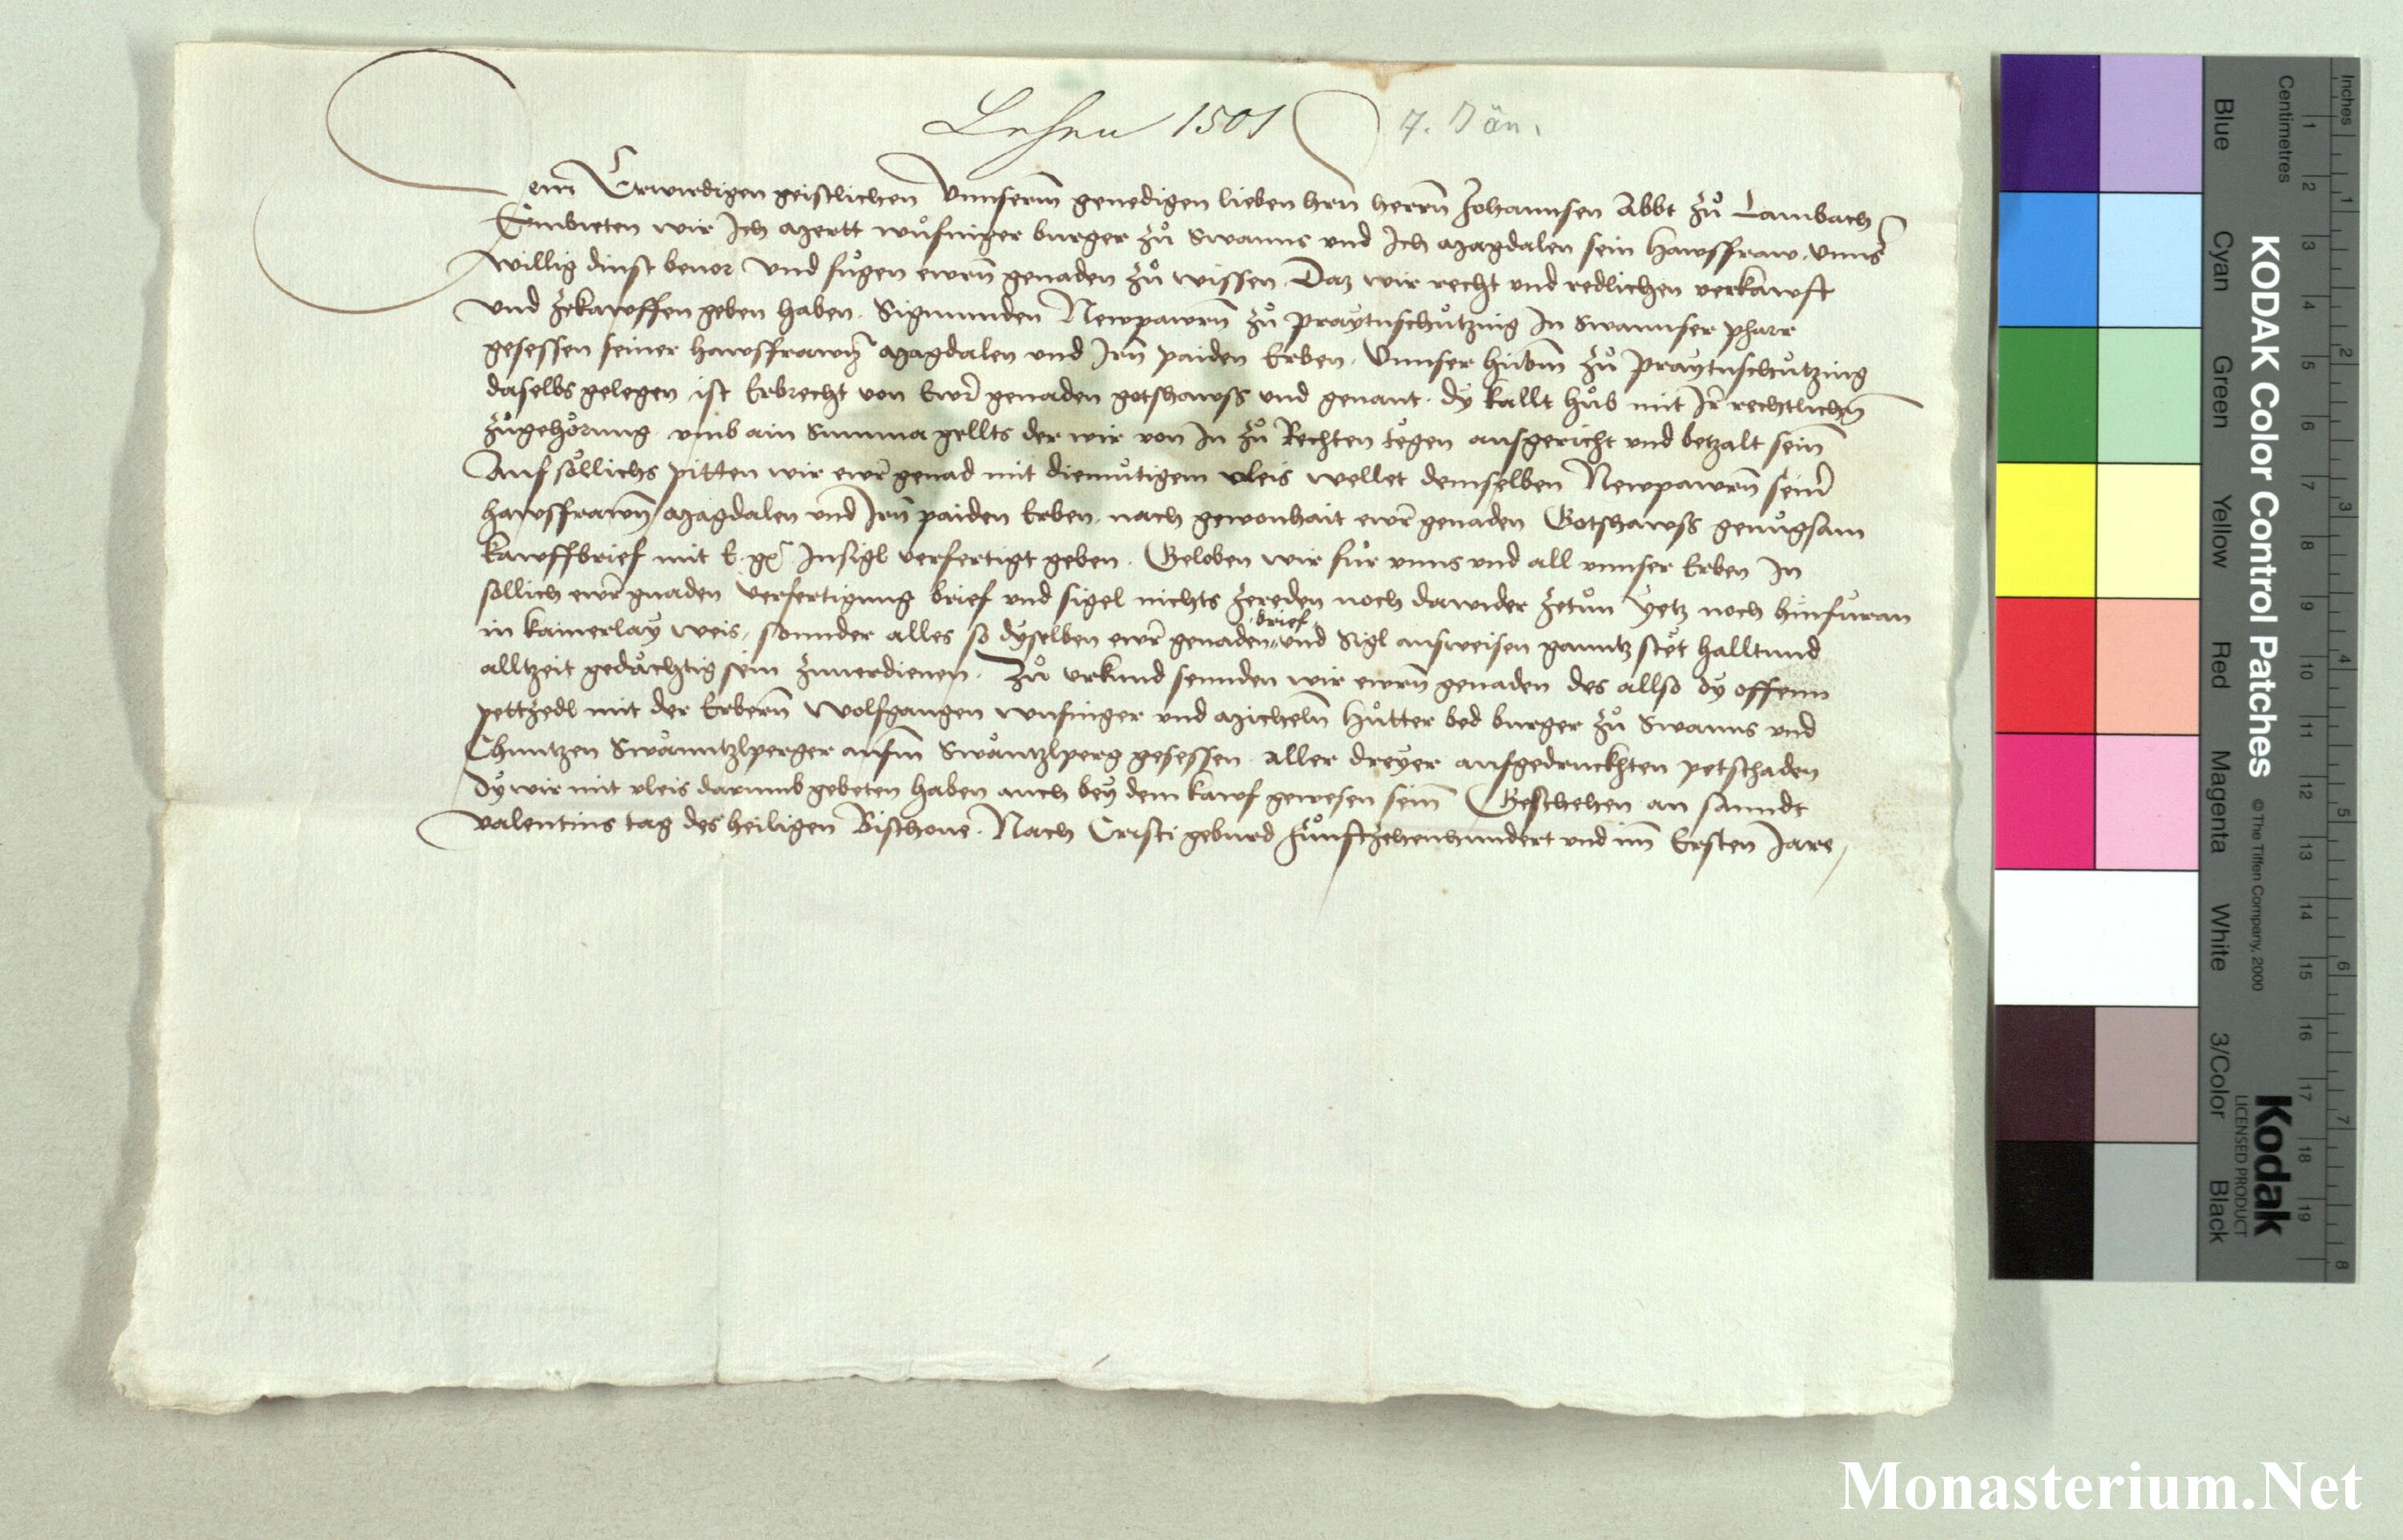 Lehen 1501 7. Jän.
Dem Erwirdigen geistlichen Unnserm genedigen lieben hrn̄ herrn̄ Johannsen Abbt zů Lambach
Embieten wir Ich Mertt wůfinger burger zů Swanns und Ich Magdalen sein hawsfraw. unns̄
willig dinst beuor Und fůgen ewrn̄ genaden zů wissen Daz wir recht und redlichen verkawft
und zekawffen geben haben. Sigmunden Newpawrn̄ zů praytnschůtzing In Swannser pharr
gesessen seiner hawsfrawn̄ Magdalen und Irn̄ paiden Erben. Unnser hůbm̄ zů praytnschůtzing
daselbs gelegen ist Erbrecht von Ewr̄ genaden gotshawss und genant. dy kallt hůb mit Ir̄ rechtlichn̄
zůgehörung umb ain Summa gellts der wir von In zů Rechten tëgen ausgericht und betzalt sein̄
Auf söllichs pitten wir ewr̄ genad mit diemůtigem vleis wellet demselben Newpawrn̄ sein̄
hawsfrawn̄ Magdalen und Irn̄ paiden Erben. nach gewonhait ewr̄ genaden Gotshawss genůgsam
kawffbrief mit E. gn̄ Insigl verfertigt geben. Geloben wir fůr unns und all unnser Erben In
sollich ewr̄ gnaden verfertigung brief und sigel nichts zereden noch dawider zetůn yetz noch hinfůran
in kainerlay weis, sonnder alles so dyselben ewr̄ genaden brief und Sigl ausweisen ganntz stët halltund
alltzeit gedächtig sein zuuerdienen. Zů urkund sennden wir ewrn̄ genaden des allso dy offenn
pettzedl mit der Erbern̄ Wolfgangen wufinger und Micheln̄ hůtter bed burger zů Swanns und
Chuntzen Swänntzlperger aufm̄ Swäntzlperg gesessen. aller dreyer aufgedruckhten petschaden
dy wir mit vleis darumb gebeten haben auch bey dem kawf gewesen sein̄ Geschehen an sanndt
valentins tag des heiligen Bischoue. Nach Cristi geburd Fůnftzehenhundert und im̄ Ersten Jare,
KODAK Color Control Patches © The Tiffen Company, 2000 Kodak LICENSED PRODUCT
Blue Cyan Green Yellow Red Magenta White 3/Color Black
Centimetres 1 2 3 4 5 6 7 8 9 10 11 12 13 14 15 16 17 18 19
Inches 1 2 3 4 5 6 7 8
Monasterium.Net